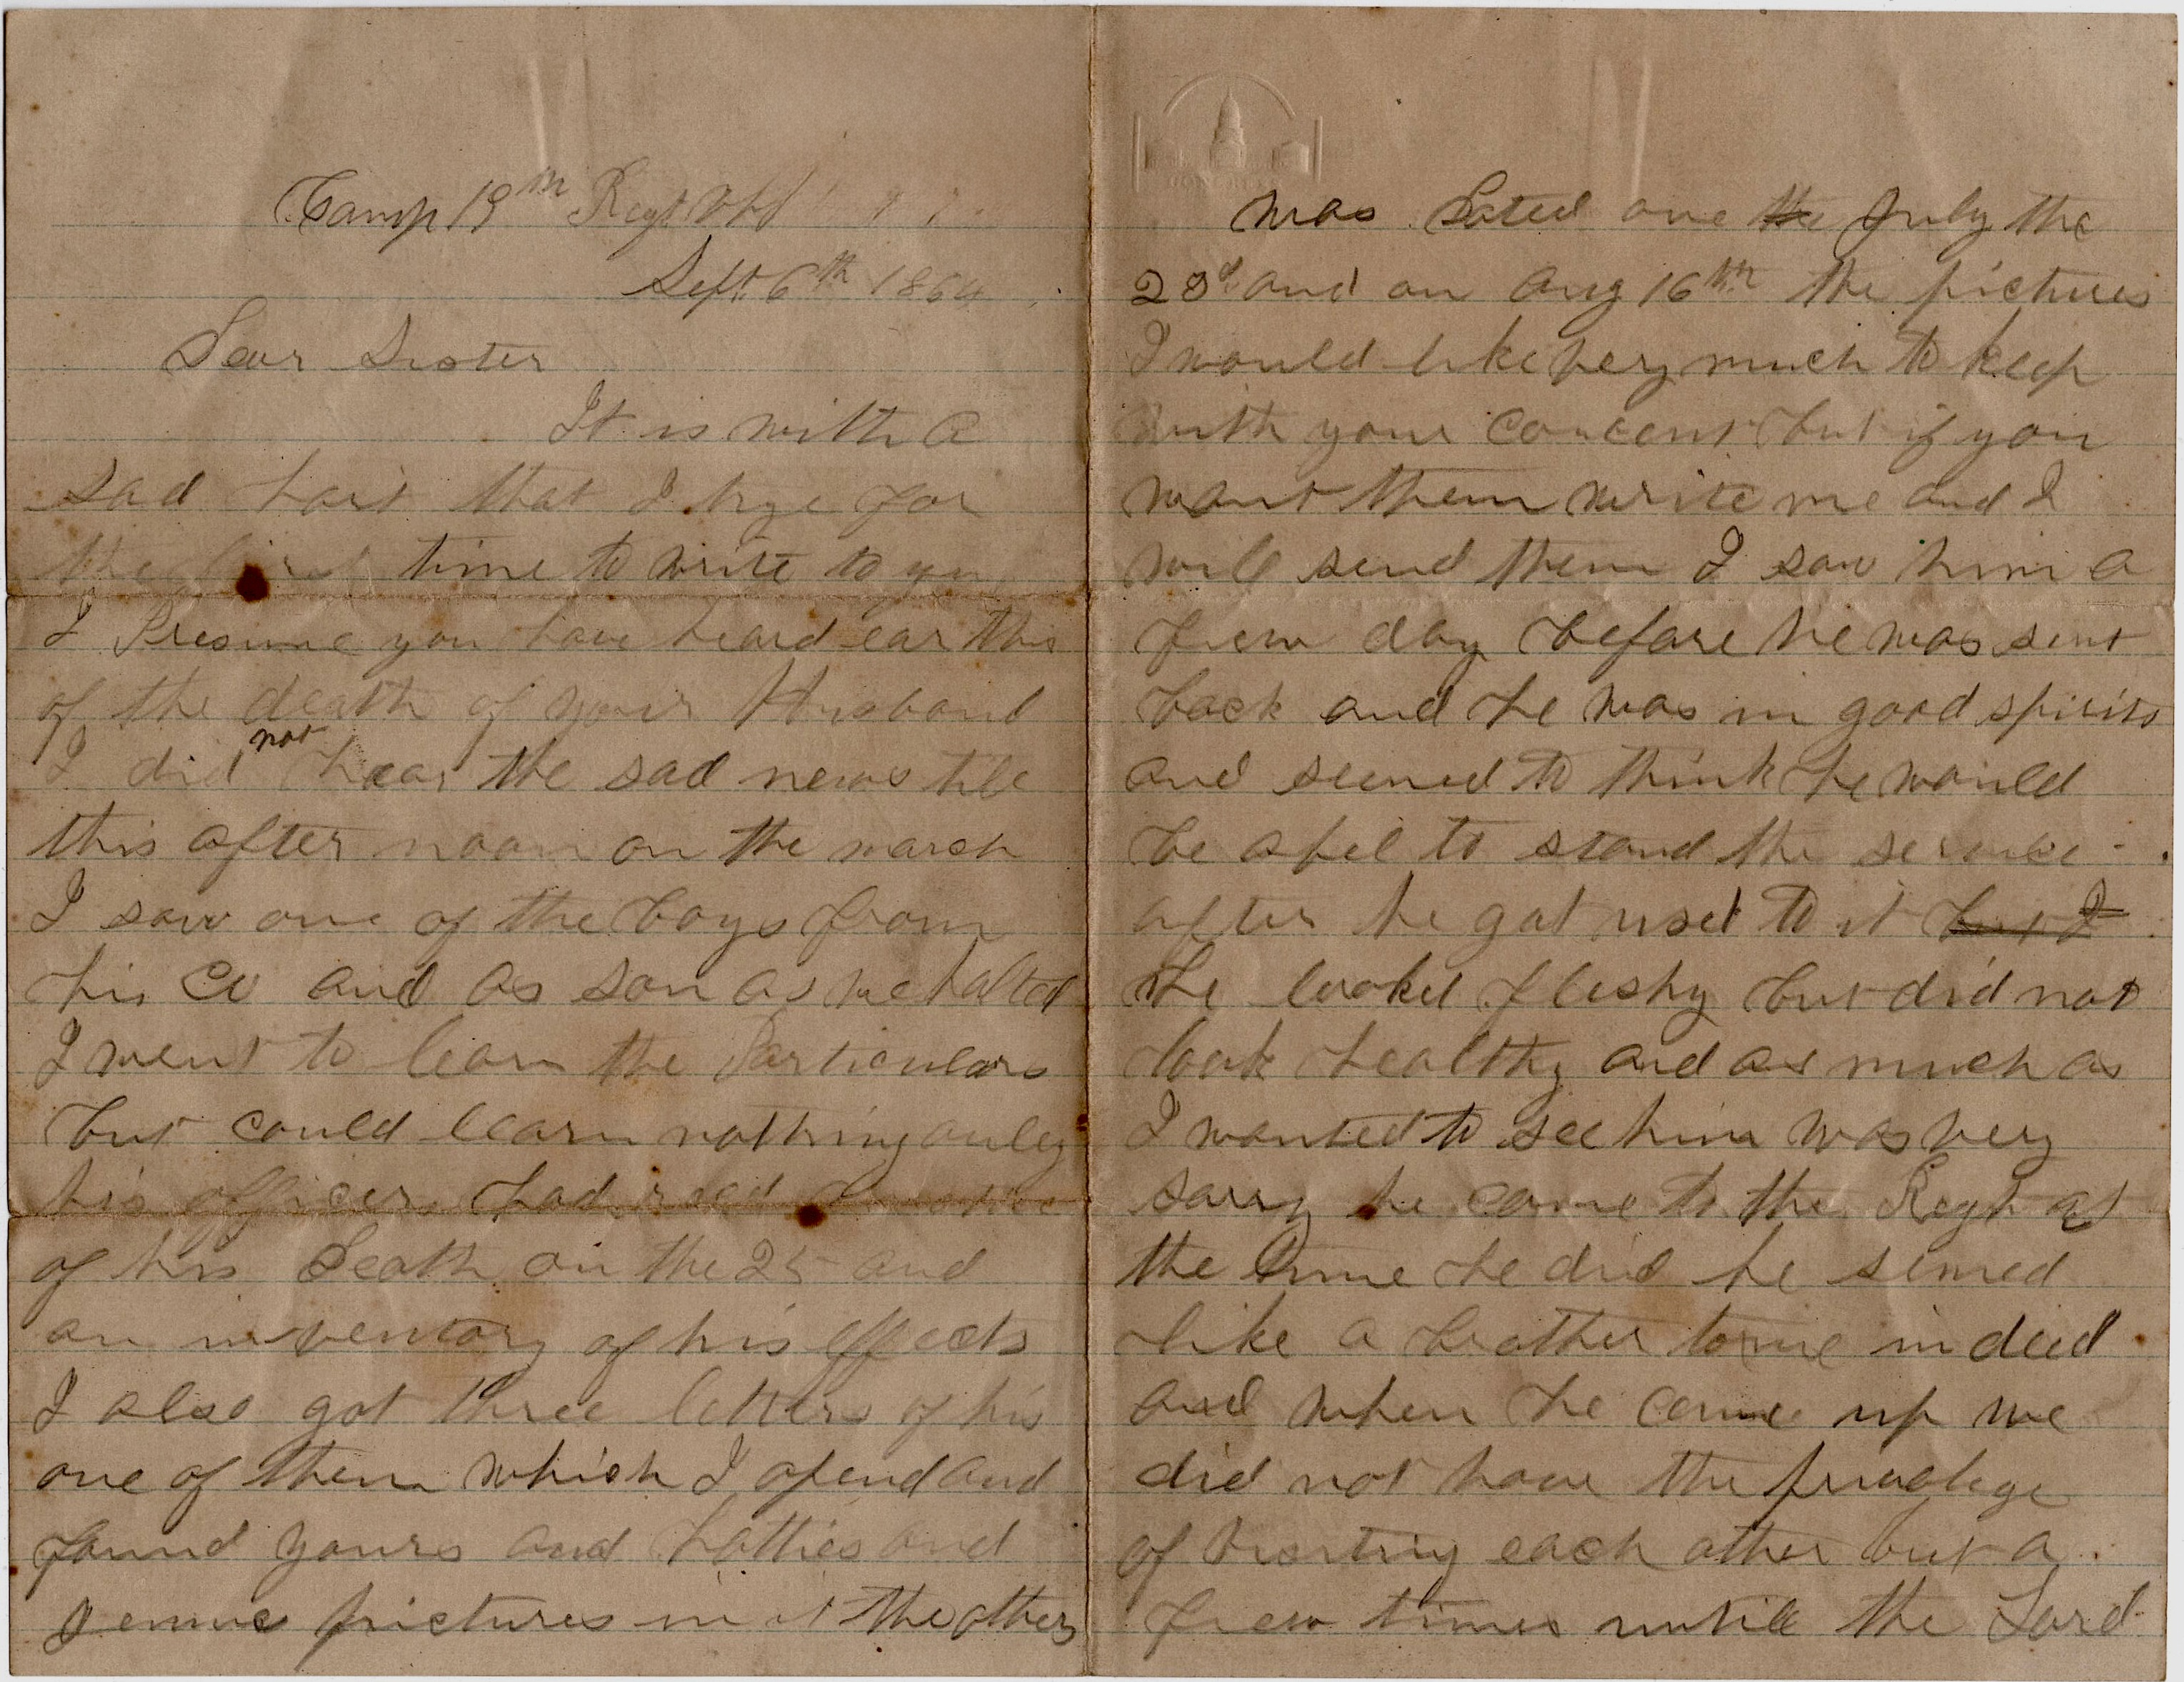 Camp 19th Regt
Sept 6th 1864
Dear Sister
It is with a
sad hart that I trye for
the first time to write to you
I Presume you have heard ear this
of the death of your Husband
I did not hear the sad news till
this after noon on the march
I saw one of the boys from
his Co and as son as we halted
I went to learn the Particulars
but could learn nothing onley
his officers had recd a notice
of his Death on the 25 and
an inventory of his effects
I also got three letters of his
one of them which I opend and
found yours and Hatties and
pictures in it the others
was Dated one the July the
and on Aug 16th the pictures
I would like very much to keep
with your concent but if you
want them write me and I
will send them I saw him a
few day before he was sent
back and he was in good spirits
and seemed to think he would
be abel to stand the service
after he got uset to it but I
He looked fleshy but did not
look healthy and as much as
I wanted to see him was very
sorry he come to the Regt at
the time he did he semed
like a brother to me in deed
and when he come up we
did not have the privalege
of visiting each other but a
few times untill the Lord